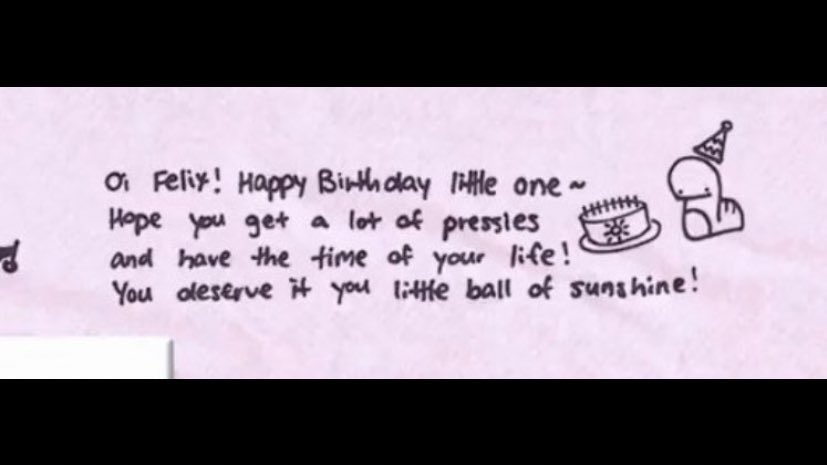 Oi Felix! Happy Birthday little one ~
Hope you get a lot of pressies
and have the time of your life!
You deserve it you little ball of sunshine!